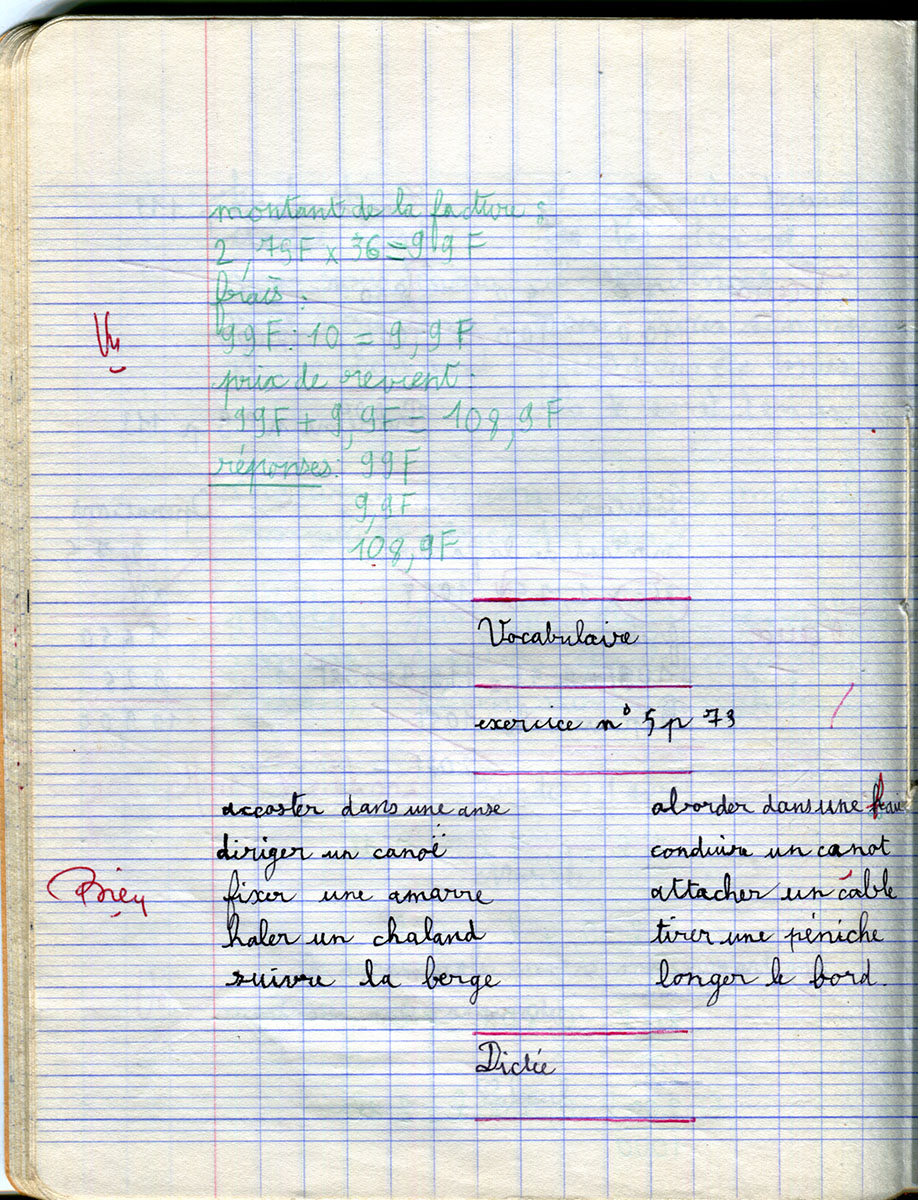 montant de la facture :
2,79F x 36 = 99F
frais :
Vu
99F : 10 = 9,9F
prix de revient :
99F + 9,9F = 108,9F
réponses : 99F
9,9F
108,9F
Vocabulaire
exercice n° 5 p 73
accoster dans une anse aborder dans une
diriger un canoë conduire un canot
Bien fixer une amarre attacher un câble
haler un chaland tirer une péniche
suivre la berge longer le bord.
Dictée